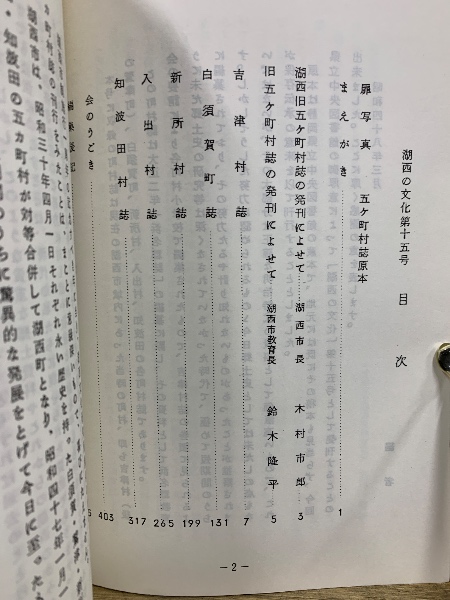 湖西の文化第十五号 目次
扉写真 五ケ町村誌原本
まえがき……1
湖西旧五ケ町村誌の発刊によせて……湖西市長 木村市郎……3
旧五ケ町村誌の発刊によせて 湖西市教育長 鈴木隆平……5
吉津村誌……7
白須賀町誌……131
新所村誌……199
入出村誌……265
知波田村誌……317
会のうごき……403
編集後記
5
カ町村誌の刊行をみたことは、まことに
湖西市は、昭和三十年四月一日それぞれ永い歴史を持った白須賀・
・知波田の五カ町村が対等合併して湖西町となり、昭和四十七年一月一
のうちに驚異的な発展をとげて今日に至った
—2—